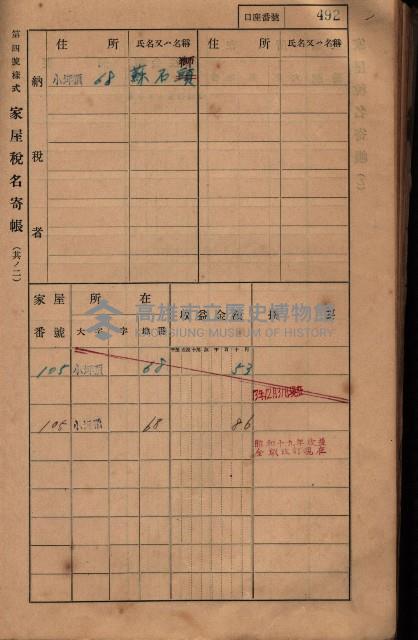 口座番號 492
第四號樣式 家屋稅名寄帳 (其ノ二)
住所 氏名又ハ名稱 住所 氏名又ハ名稱
納稅者
小坪頂 68 蘇石獅
家屋番號 所在 大字 字 地番 收益金額 摘要
105 小坪頂 68 53
105 小坪頂 68 86
昭和十九年收益
金額改訂現在
高雄市立歷史博物館
KAOHSIUNG MUSEUM OF HISTORY